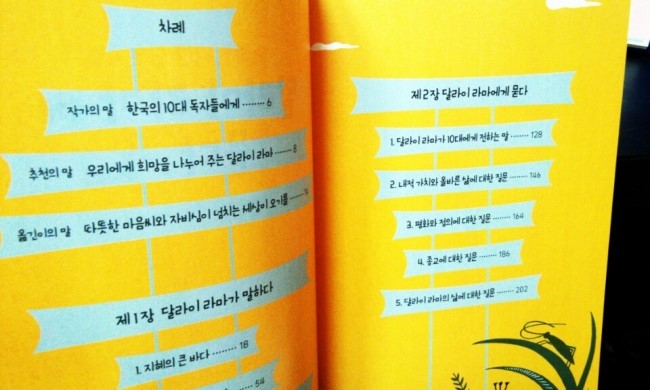 차례
작가의 말 한국의 10대 독자들에게 ········ 6
추천의 말 우리에게 희망을 나누어 주는 달라이 라마 ······· 8
옮긴이의 말 따뜻한 마음씨와 자비심이 넘치는 세상이 오기를 ·······
제1장 달라이 라마가 말하다
1. 지혜의 큰 바다 ······· 18
54
제2장 달라이 라마에게 묻다
1. 달라이 라마가 10대에게 전하는 말 ········ 128
2. 내적 가치와 올바른 삶에 대한 질문 ········ 146
3. 평화와 정의에 대한 질문 ········ 164
4. 종교에 대한 질문 ········ 186
5. 달라이 라마의 삶에 대한 질문 ········ 202